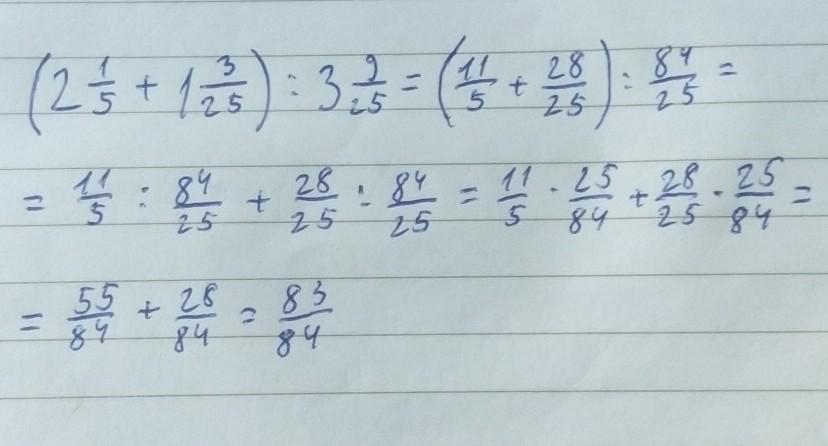 (2 1/5 + 1 3/25) : 3 9/25 = (11/5 + 28/25) : 84/25 =
= 11/5 : 84/25 + 28/25 : 84/25 = 11/5 · 25/84 + 28/25 · 25/84 =
= 55/84 + 28/84 = 83/84